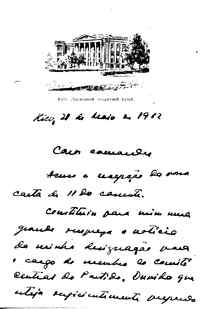 Kiev, 28 de Maio de 1982
Caro camarada
Acuso a recepção da vossa
carta de 11 do corrente.
Constituiu para mim uma
grande surpresa a notícia
da minha designação para
o cargo de membro do Comité
Central do Partido. Duvido que
esteja suficientemente